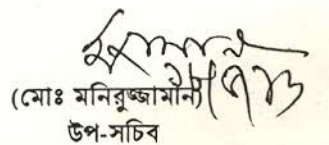 (মোঃ মনিরুজ্জামান)
উপ-সচিব